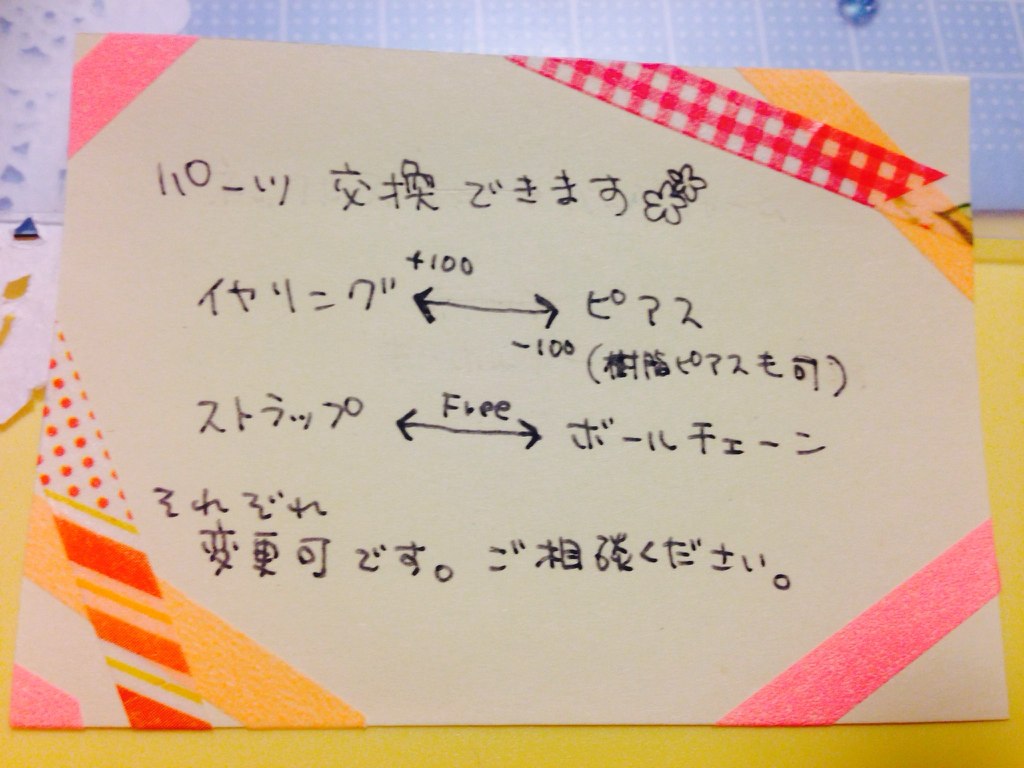 パーツ交換できます
+100
イヤリング ↔ ピアス
-100 (樹脂ピアスも可)
Free
ストラップ ↔ ボールチェーン
それぞれ
変更可です。ご相談ください。